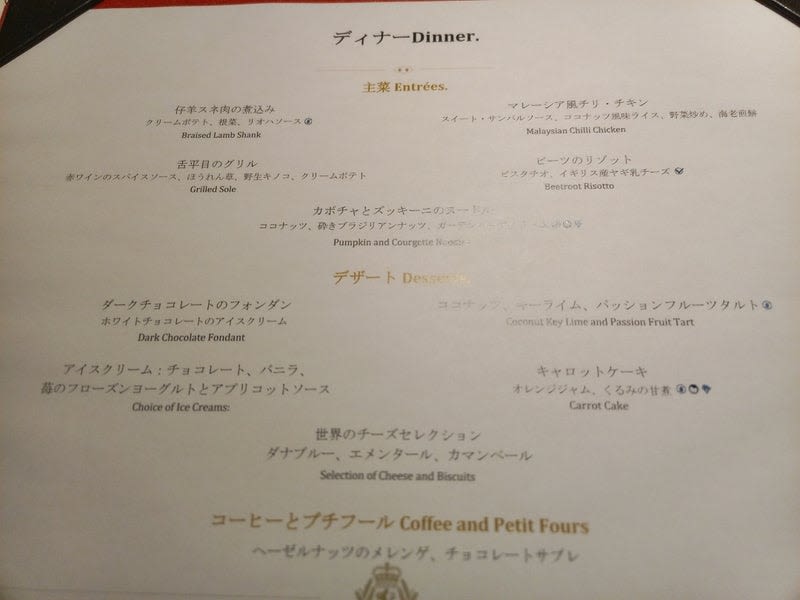 ディナーDinner.
主菜 Entrées.
仔羊スネ肉の煮込み
クリームポテト、根菜、リオハソース
Braised Lamb Shank
マレーシア風チリ・チキン
スイート・サンバルソース、ココナッツ風味ライス、野菜炒め、海老煎餅
Malaysian Chilli Chicken
舌平目のグリル
赤ワインのスパイスソース、ほうれん草、野生キノコ、クリームポテト
Grilled Sole
ビーツのリゾット
ピスタチオ、イギリス産ヤギ乳チーズ
Beetroot Risotto
カボチャとズッキーニのヌードル
ココナッツ、砕きブラジリアンナッツ、
Pumpkin and Courgette
デザート Desserts.
ダークチョコレートのフォンダン
ホワイトチョコレートのアイスクリーム
Dark Chocolate Fondant
ココナッツ、キーライム、パッションフルーツタルト
Coconut Key Lime and Passion Fruit Tart
アイスクリーム：チョコレート、バニラ、
苺のフローズンヨーグルトとアプリコットソース
Choice of Ice Creams:
キャロットケーキ
オレンジジャム、くるみの甘煮
Carrot Cake
世界のチーズセレクション
ダナブルー、エメンタール、カマンベール
Selection of Cheese and Biscuits
コーヒーとプチフール Coffee and Petit Fours
ヘーゼルナッツのメレンゲ、チョコレートサブレ